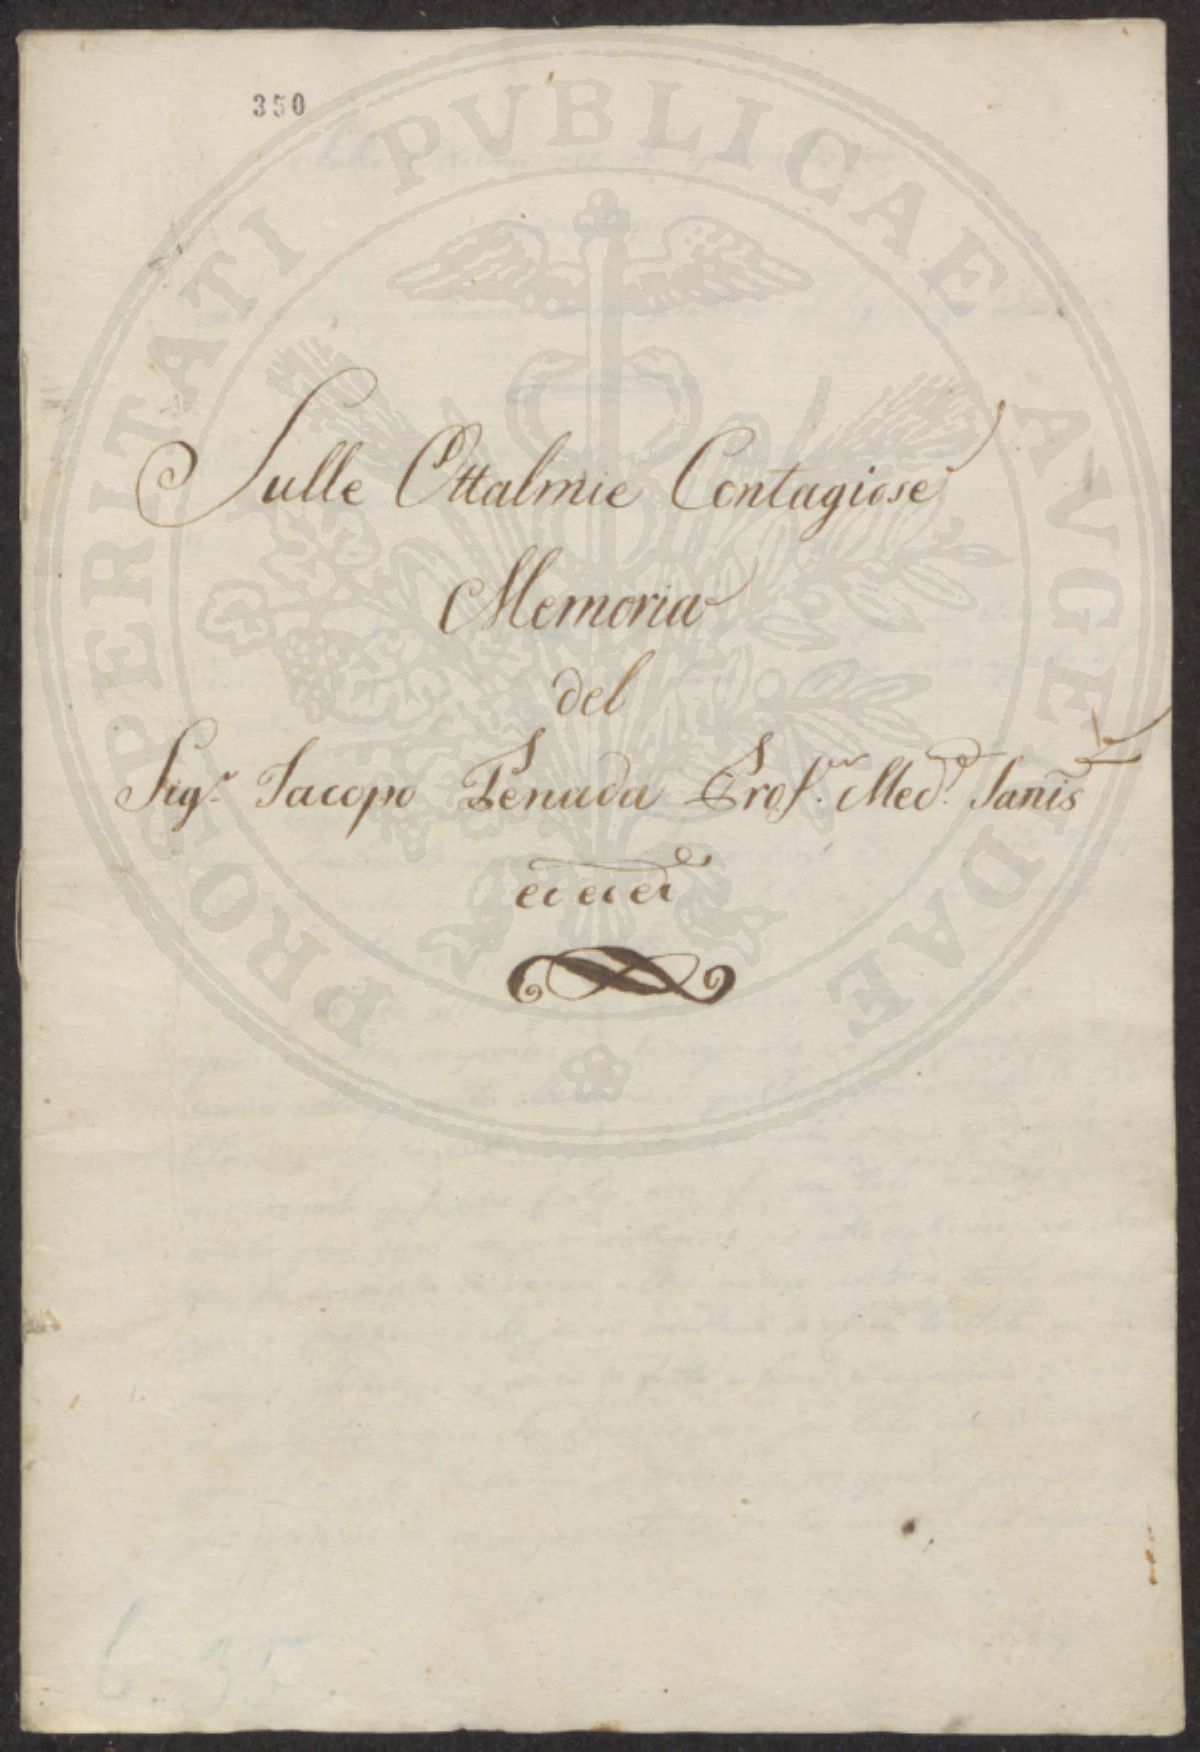 350
PROSPERITATI PVBLICAE AVGENDAE
Sulle Ottalmie Contagiose
Memoria
del
Sigr. Iacopo Penada Profr. Medo.
ec ec ec
6. 35